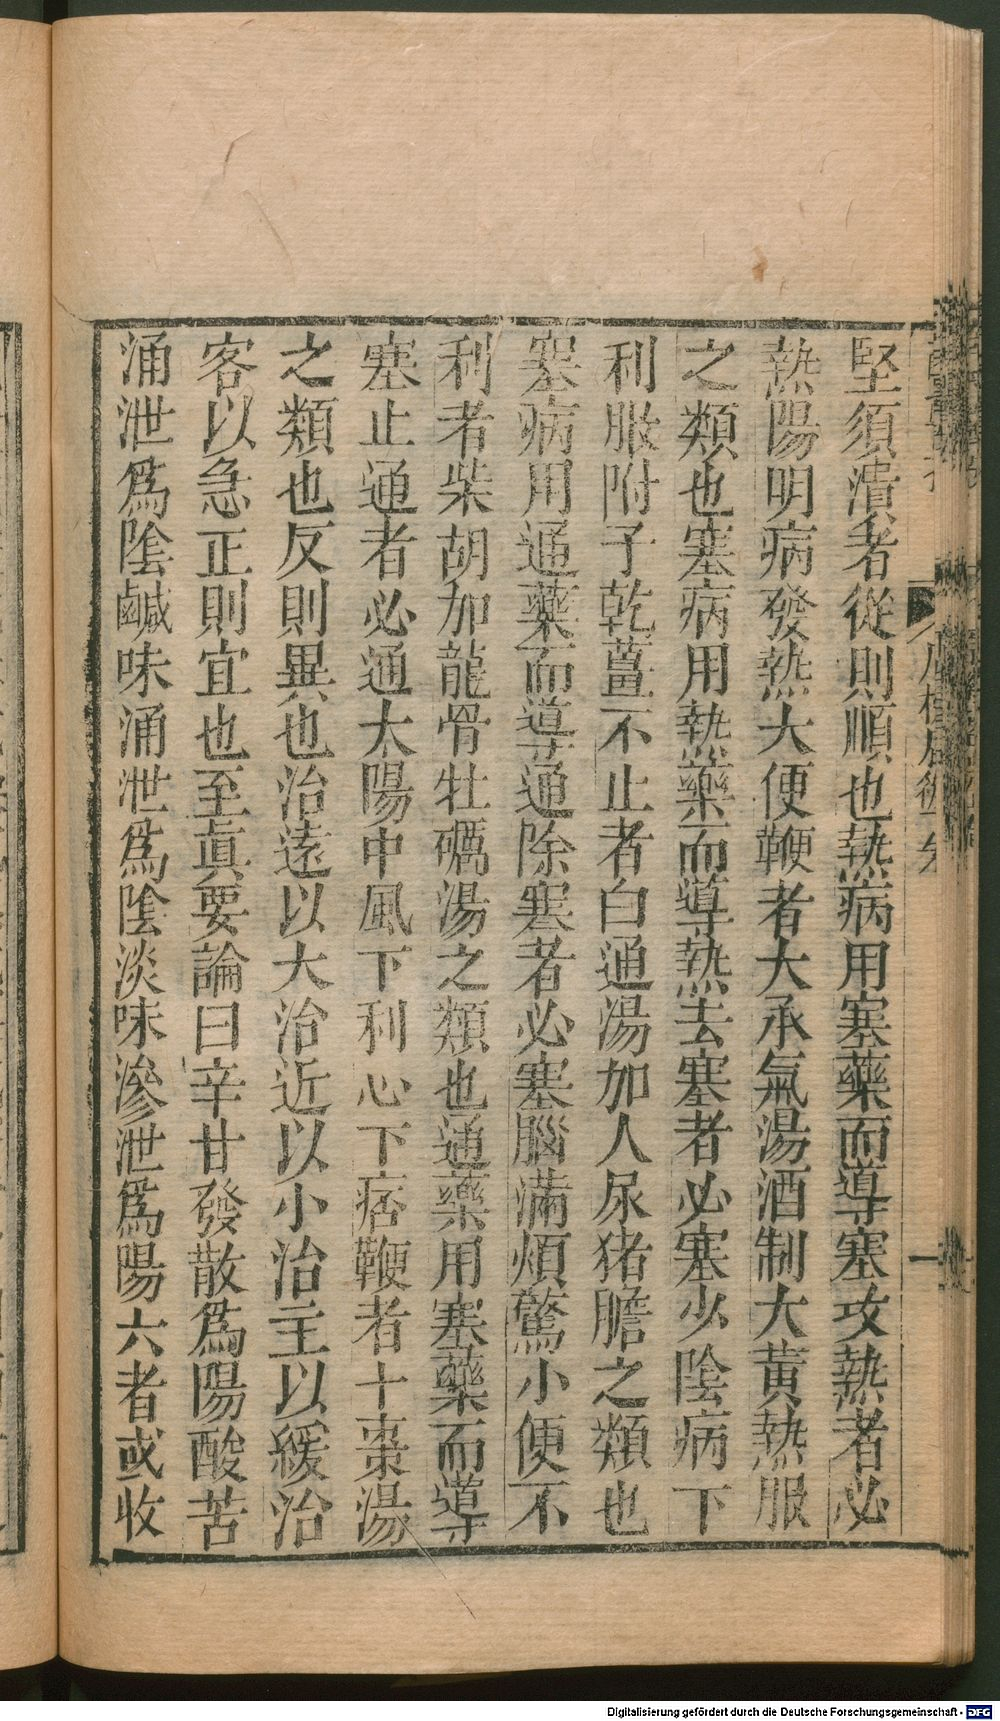 堅須潰者從則順也熱病用塞藥而導塞攻熱者必
熱陽明病發熱大便鞕者大承氣湯酒制大黃熱服
之類也塞病用熱藥而導熱去塞者必塞少陰病下
利服附子乾薑不止者白通湯加人尿猪膽之類也
塞病用通藥而導通除塞者必塞腦滿煩驚小便不
利者柴胡加龍骨牡礪湯之類也通藥用塞藥而導
塞止通者必通太陽中風下利心下痞鞕者十棗湯
之類也反則異也治遠以大治近以小治主以緩治
客以急正則宜也至眞要論曰辛甘發散爲陽酸苦
涌泄爲陰鹹味涌泄爲陰淡味滲泄爲陽六者或收
一
Digitalisierung gefördert durch die Deutsche Forschungsgemeinschaft - DFG